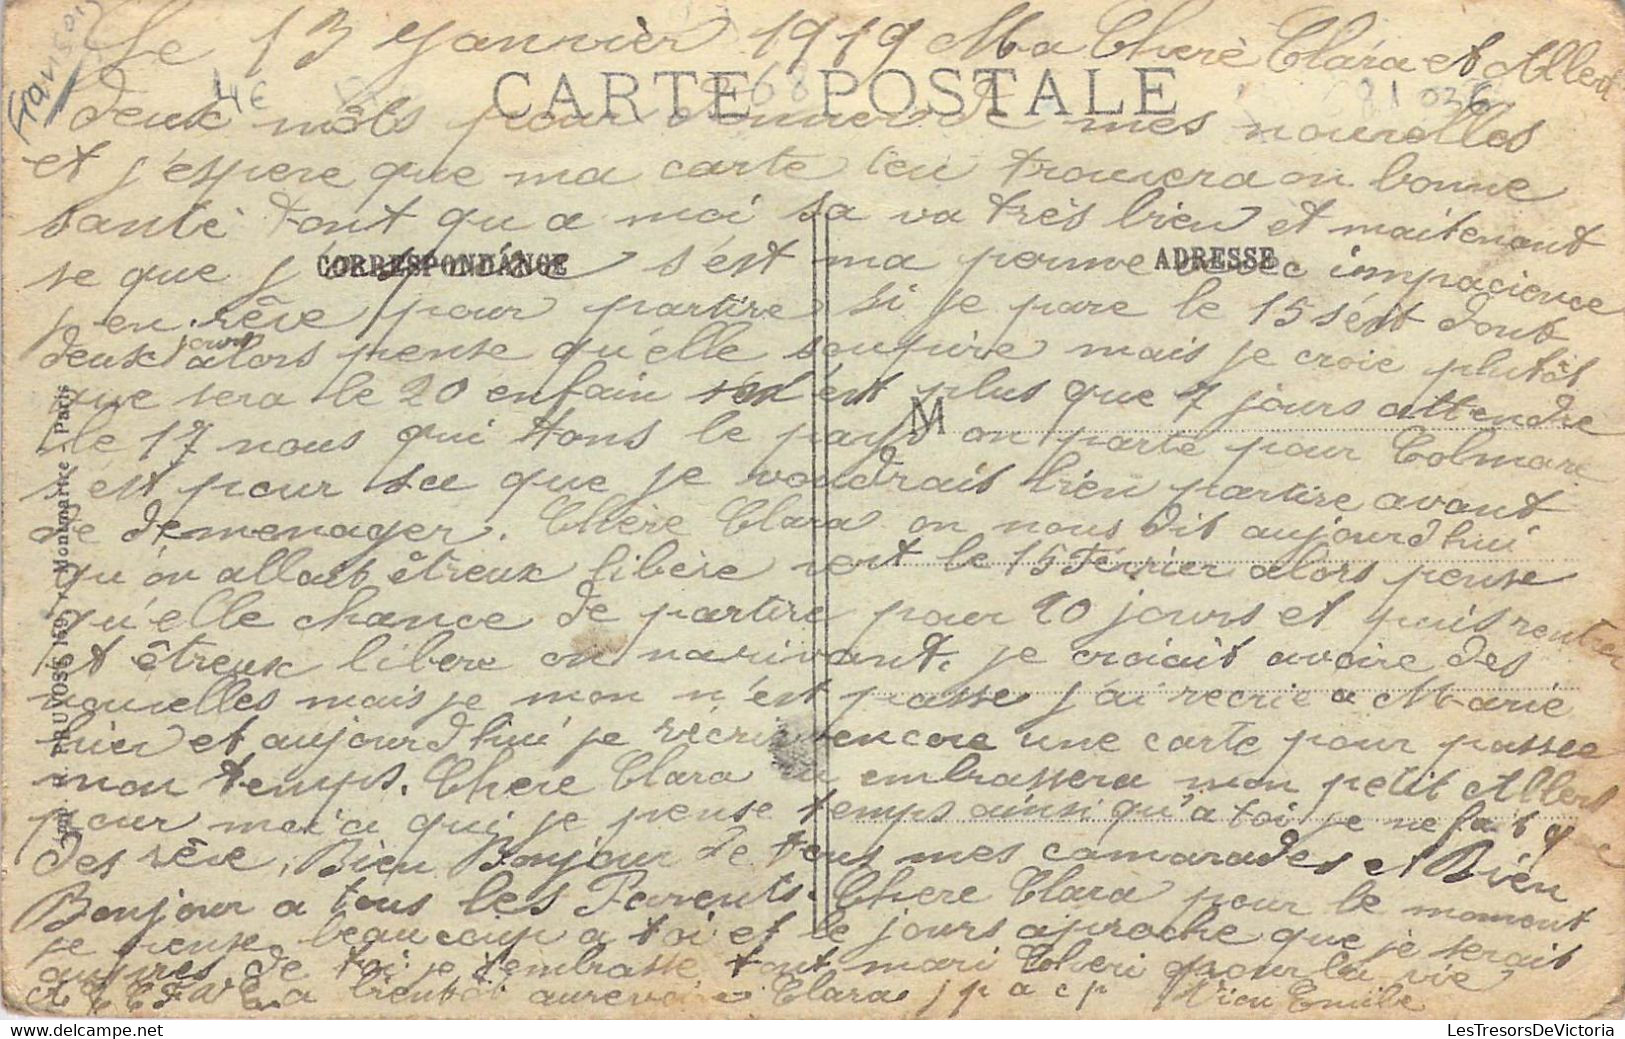 Le 13 Janvièr 1919 Ma Cherè Clara et Albert
CARTE POSTALE
deux môts pour donner de mes nouvelles
et j'espere que ma carte teu trouvera on bonne
santé tont qu a moi sa va très bien et maitenant
CORRESPONDANCE
ADRESSE
se que j s'ést ma permve avec impacience
j en rêve pour partire si je pare le 15 sést dont
deux jours alors pense qu'élle soupire mais je croie plutôt
que sera le 20 enfain s'ést plus que 7 jours attendre
M
le 17 nous qui tons le pays on parte pour Colmare
s'est pour sa que je voudrais bien partire avant
de demenager. Chère Clara on nous dit aujourdhui
qu'on allait êtreux libère vert le 15 Février alors pense
qu'elle chance de partire pour 20 jours et puis rentrer
et êtreux libere on narivant. je croiait avoire des
nouvelles mais je mon n'ést passe j'ai recrie a Marie
hier et aujourdhui je récris encore une carte pour passee
mon temps. Chere Clara tu embrassera mon petit Albert
pour moi a qui je pense temps ainsi qu'a toi je ne fait que
des rêve, Bien Bonjour de tous mes camarades et Bién
Bonjour a tous les Parents. Chere Clara pour le moment
je pense beaucoup a toi et le jours aproche que je serait
aupres de toi je t'embrasse tont mari Cheri pour la vie
a bientôt aurevoire Clara j p a c p Vieu Emile
Imp. H. PRUVOST, 159, r. Montmartre - Paris
4€